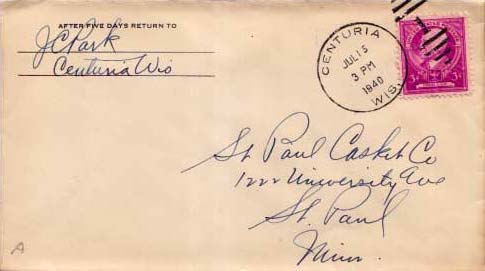 AFTER FIVE DAYS RETURN TO
J C Park
Centuria Wis
CENTURIA
JUL 15
3 PM
1940
WIS.
3¢ 3¢
St Paul Casket Co
1222 University Ave
St. Paul
Minn.
A